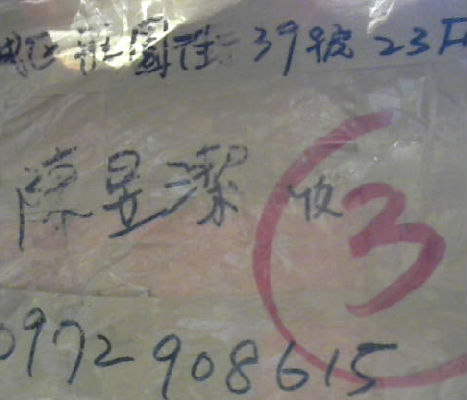 39號 23F
陳昱潔 收
③
0972 908615